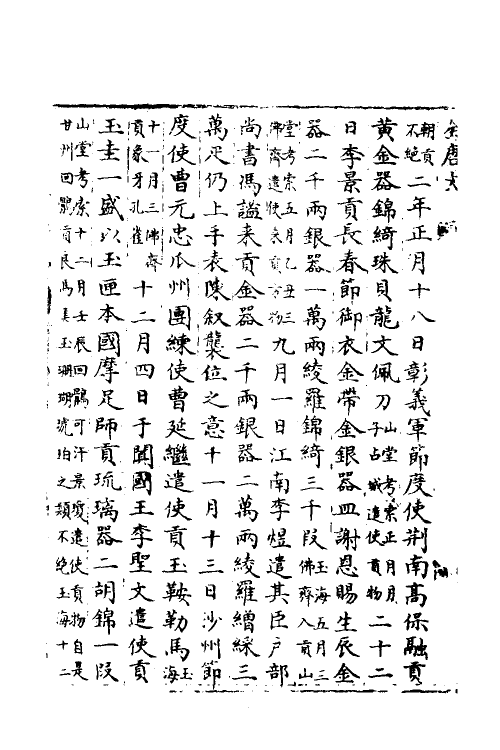 朝貢不絕二年正月十八日彰義軍節度使荆南高保融貢
黃金器錦綺珠貝龍文佩刀山堂考索正月月子占城遣使貢物二十二
日李景貢長春節御衣金帶金銀器皿謝恩賜生辰金
器二千兩銀器一萬兩綾羅錦綺三千段玉海五月三佛齊入貢山
堂考索五月乙丑三佛齊遣使來貢方物九月一日江南李煜遣其臣户部
尚書馮謐来貢金器二千兩銀器二萬兩綾羅繒綵三
萬疋仍上手表陳叙襲位之意十一月十三日沙州節
度使曹元忠瓜州團練使曹延繼遣使貢玉鞍勒馬玉海
十一月三佛齊貢象牙孔雀十二月四日于闐國王李聖文遣使貢
玉圭一盛以玉匣本國摩尼師貢琉璃器二胡錦一段
山堂考索十二月壬辰回鶻可汗景瓊遣使貢物自是甘州回鶻貢良馬美玉珊瑚琥珀之類不絕玉海十二